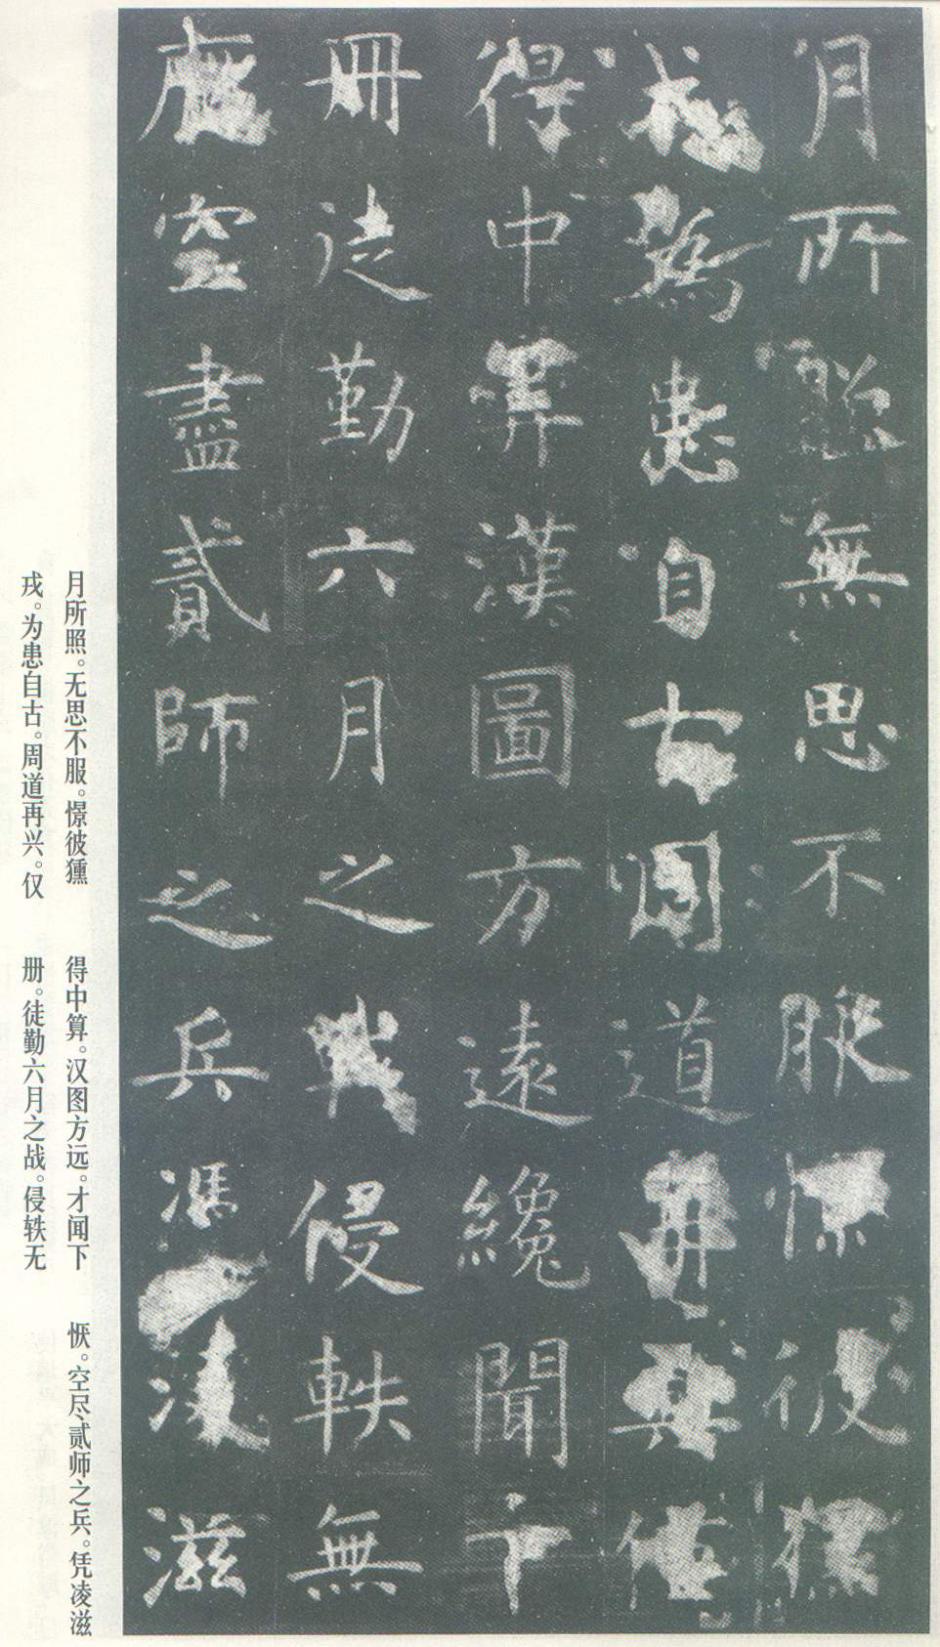 月所照無思不服憬彼獯
戎為患自古周道再興僅
得中筭漢圖方遠纔聞下
冊徒勤六月之戰侵軼無
空盡貳師之兵馮凌滋
月所照。无思不服。憬彼獯
戎。为患自古。周道再兴。仅
得中算。汉图方远。才闻下
册。徒勤六月之战。侵轶无
恹。空尽贰师之兵。凭凌滋